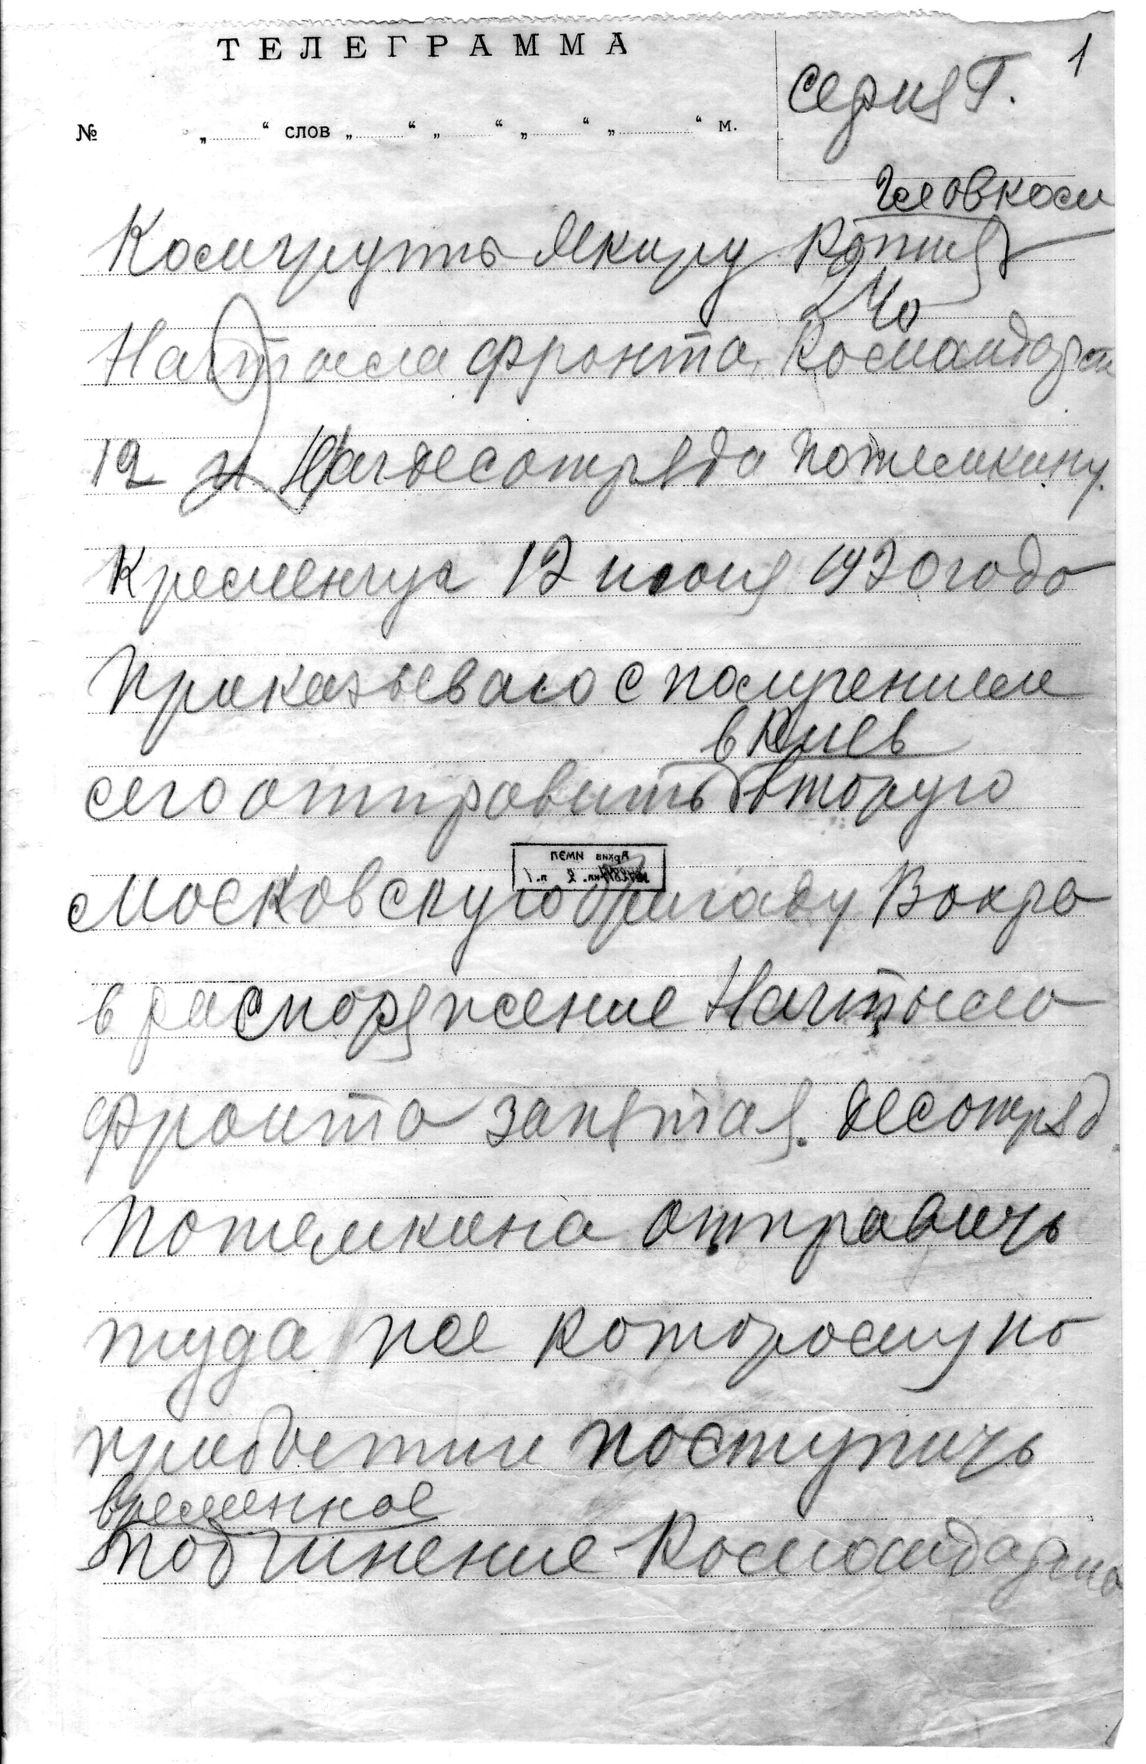 ТЕЛЕГРАММА
1
серия Г.
№ „ “ слов „ “ „ “ „ “ „ “ м.
Главком
Комгруппы Якиру Копия
Начтыла фронта, Командарм
12 и Начдесотряда Потемкину.
Кременчуг 12 июня 1920 года
Приказываю с получением
в Киев
сего отправить вторую
Московскую бригаду Вохра
в распоряжение Начтыла
фронта запятая. Десотряд
Потемкина отправить
туда же которому по
прибытии поступить
временное
подчинение Командарма
Архив ИМЭЛ